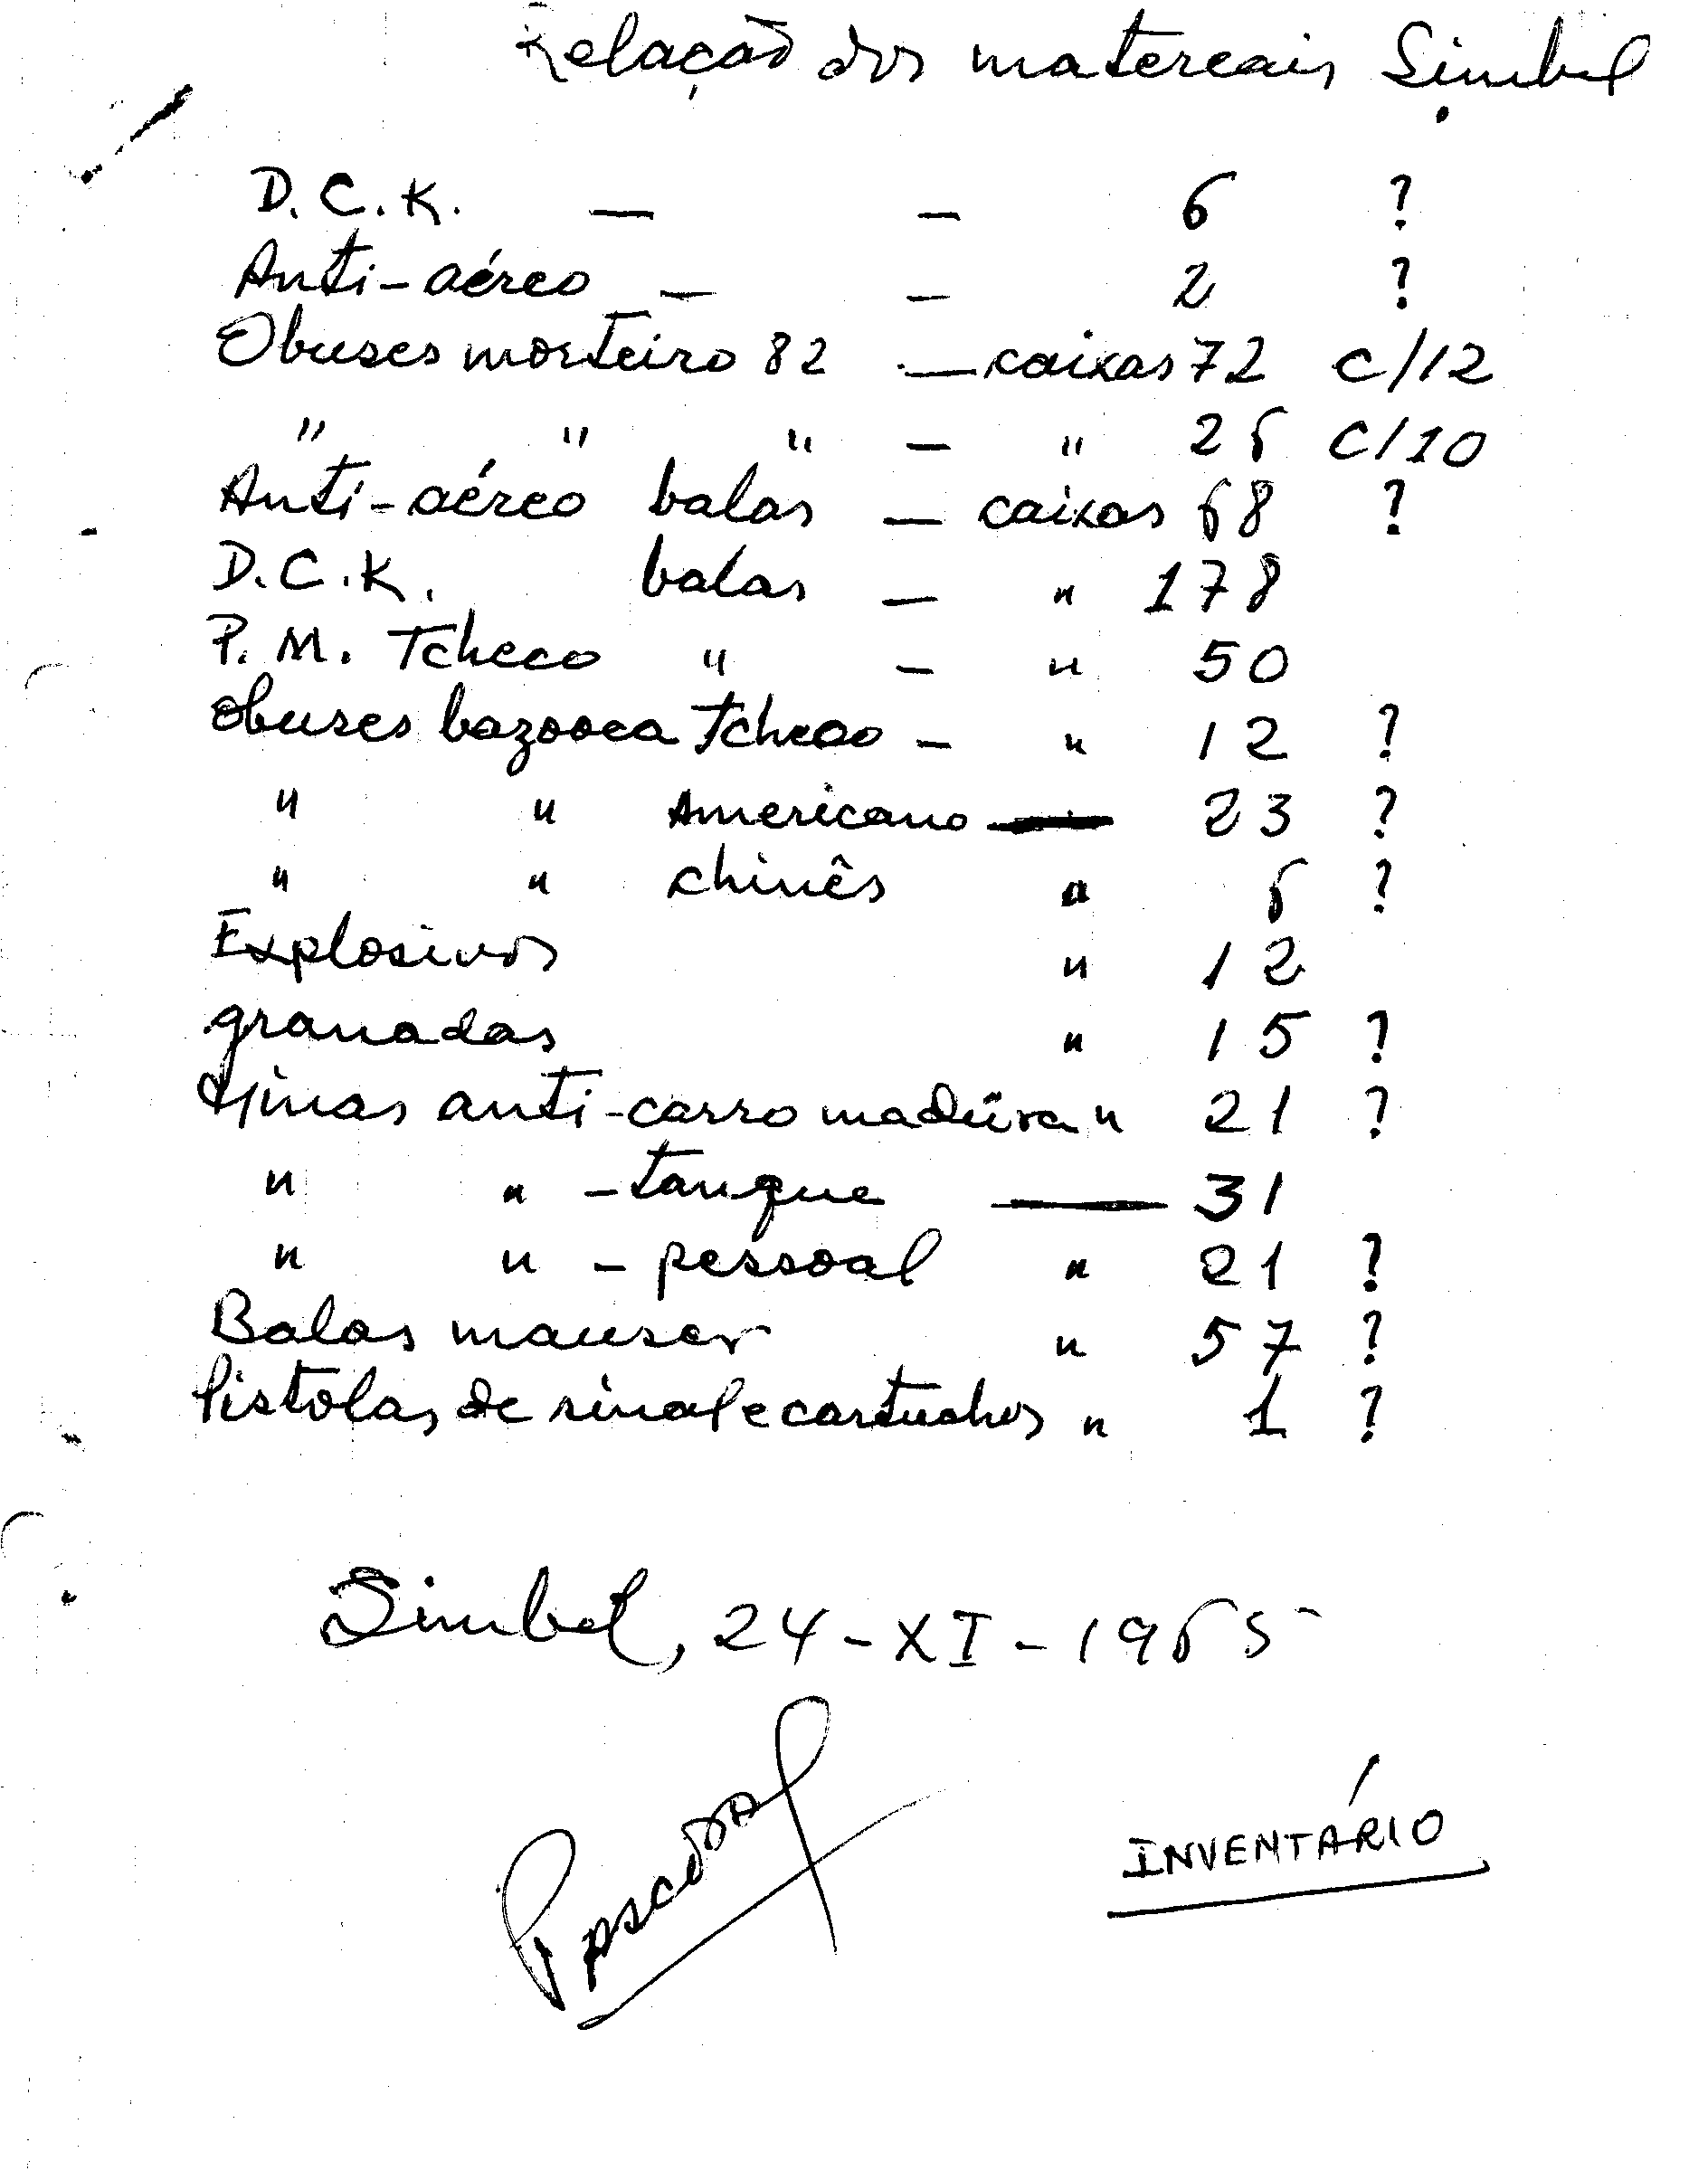 Relação dos matereais Simbel
D.C.K. — — 6 ?
Anti-aéreo — — 2 ?
Obuses morteiro 82 — caixas 72 c/12
" " " — " 26 C/10
Anti-aéreo balas — caixas 68 ?
D.C.K. balas — " 178
P.M. Tcheco " — " 50
Obuses bazooca Tcheco — " 12 ?
" " Americano — 23 ?
" " chinês " 6 ?
Explosivos " 12
granadas " 15 ?
Minas anti-carro madeira " 21 ?
" " - tanque — 31
" " - pessoal " 21 ?
Balas mauser " 57 ?
Pistolas de sinal e cartuchos " 1 ?
Simbel, 24-XI-1965
Pascoal
INVENTÁRIO